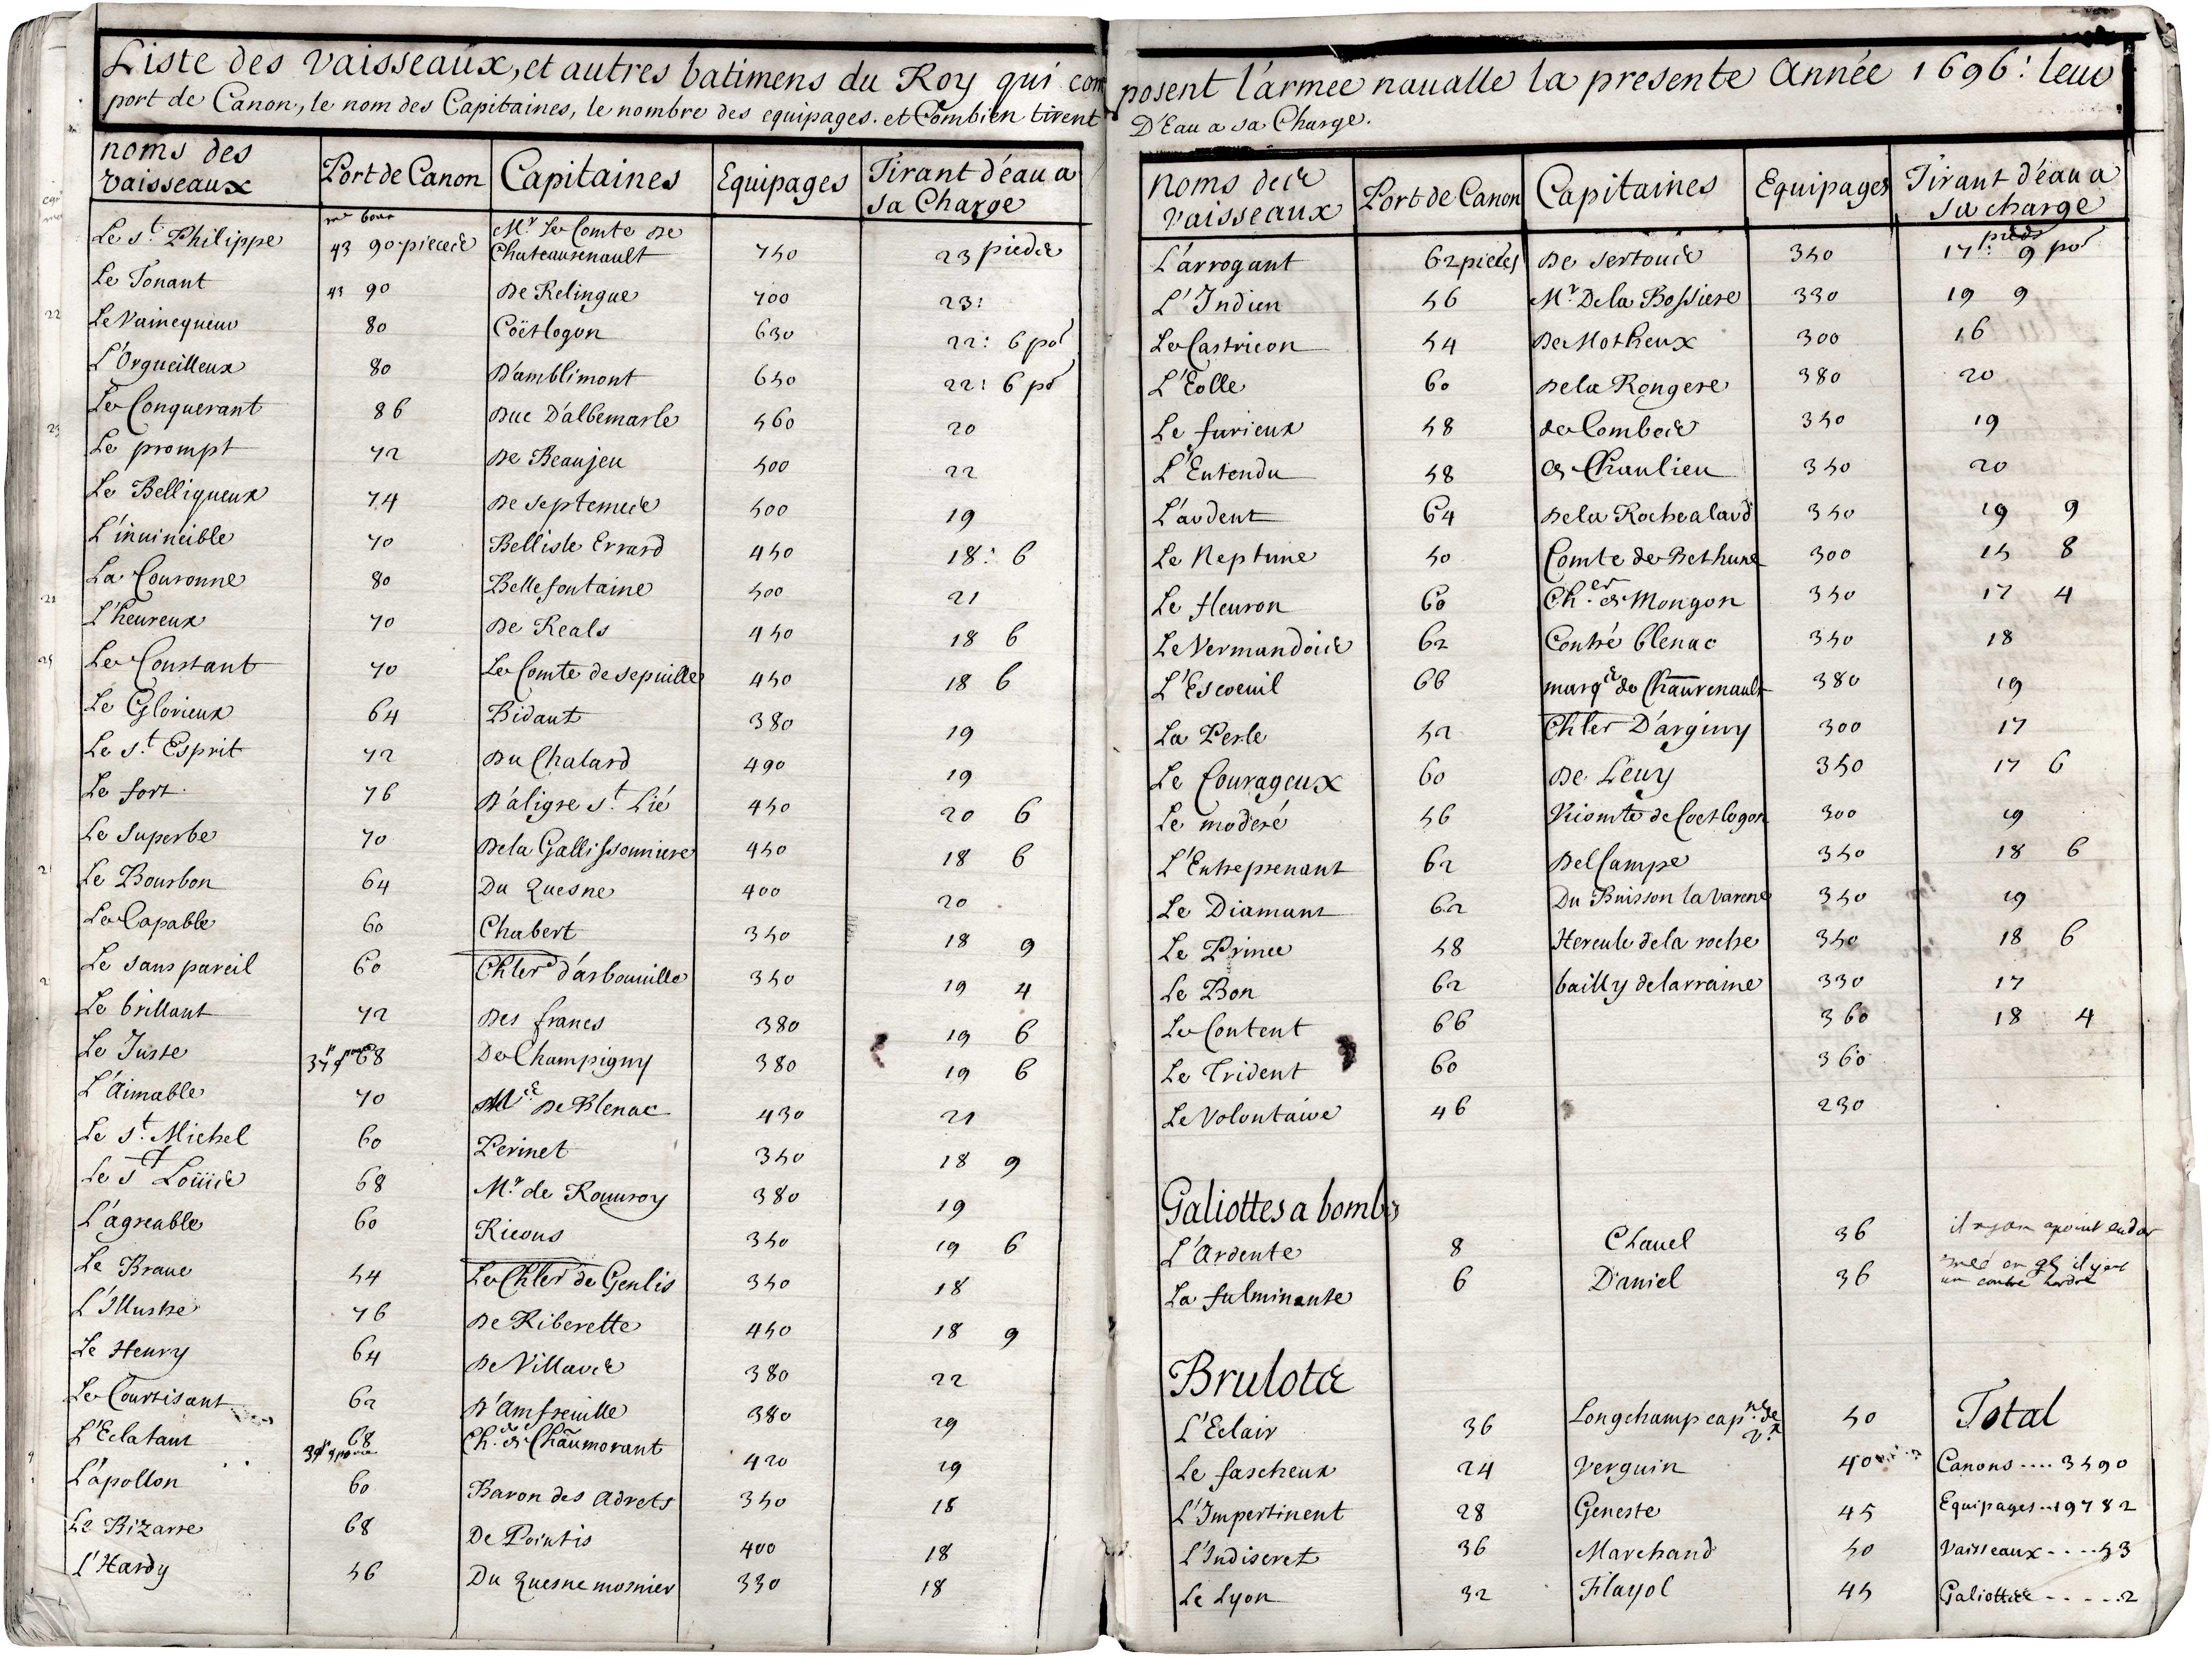 Liste des vaisseaux, et autres batimens du Roy qui com posent l'armee naualle la presente Année 1696: leur
port de Canon, le nom des Capitaines, le nombre des equipages. et Combien tirent D'Eau a sa Charge.
noms des vaisseaux Port de Canon Capitaines Equipages Tirant d'éau a sa Charge
Le st. Philippe 43 90 pieces Mr. Le Comte de Chateaurenault 750 23 pieds
Le Tonant 43 90 De Relingue 700 23:
Le Vainequeur 80 Coëtlogon 630 22: 6 po
L'Orgueilleux 80 D'amblimont 650 22: 6 po
Le Conquerant 86 Duc D'albemarle 560 20
Le prompt 72 De Beaujeu 500 22
Le Belliqueux 74 De septemes 500 19
L'inuincible 70 Bellisle Errard 450 18: 6
La Couronne 80 Bellefontaine 500 21
L'heureux 70 De Reals 450 18 6
Le Constant 70 Le Comte de sepuille 450 18 6
Le Glorieux 64 Bidaut 380 19
Le st. Esprit 72 Du Chalard 490 19
Le fort 76 D'aligre st. Lié 450 20 6
Le Superbe 70 De la Gallissonniere 450 18 6
Le Bourbon 64 Du Quesne 400 20
Le Capable 60 Chabert 350 18 9
Le sans pareil 60 Chler d'arbouuille 350 19 4
Le brillant 72 Des francs 380 19 6
Le Juste 68 De Champigny 380 19 6
L'Aimable 70 De Blenac 430 21
Le st. Michel 60 Perinet 350 18 9
Le st Loüis 68 Mr. de Rouuroy 380 19
L'agreable 60 Ricous 350 19 6
Le Braue 54 Le Chler de Genlis 350 18
L'Illustre 76 De Riberette 450 18 9
Le Henry 64 De Villars 380 22
Le Courtisant 62 D'Amfreuille 380 19
L'Eclatant 68 Ch. de Chaumorant 420 19
L'apollon 60 Baron des Adrets 350 18
Le Bizarre 68 De Pointis 400 18
L'Hardy 56 Du Quesne mosnier 330 18
noms des vaisseaux Port de Canon Capitaines Equipages Tirant d'éau a sa charge
L'arrogant 62 pieces De sertouis 350 17 pieds 9 po
L'Indien 56 Mr. De la Bossiere 330 19 9
Le Castricon 54 De Motheux 300 16
L'Eolle 60 De la Rongere 380 20
Le furieux 58 de Combes 350 19
L'Entendu 58 de Chaulieu 350 20
L'ardent 64 De la Rochealard 350 19 9
Le Neptune 50 Comte de Bethune 300 15 8
Le fleuron 60 Cher. de Mongon 350 17 4
Le Vermandois 62 Contré blenac 350 18
L'Escueuil 66 marq de Chaurenault 380 19
La Perle 52 Chler D'arginy 300 17
Le Courageux 60 De Leuy 350 17 6
Le moderé 56 Vicomte de Coetlogon 300 19
L'Entreprenant 62 Del Campe 350 18 6
Le Diamant 62 Du Buisson la varene 350 19
Le Prince 58 Hercule de la roche 350 18 6
Le Bon 62 bailly de larraine 330 17
Le Content 66 360 18 4
Le Trident 60 360
Le Volontaire 46 230
Galiottes a bombes
L'Ardente 8 Chauel 36
La fulminante 6 Daniel 36
Brulots
L'Eclair 36 Longchamp cap 50
Le fascheux 24 Verguin 40
L'Impertinent 28 Geneste 45
L'Indiscret 36 Marchand 50
Le Lyon 32 Flayol 45
Total
Canons .... 3490
Equipages .. 19782
Vaisseaux .... 53
Galiottes ..... 2